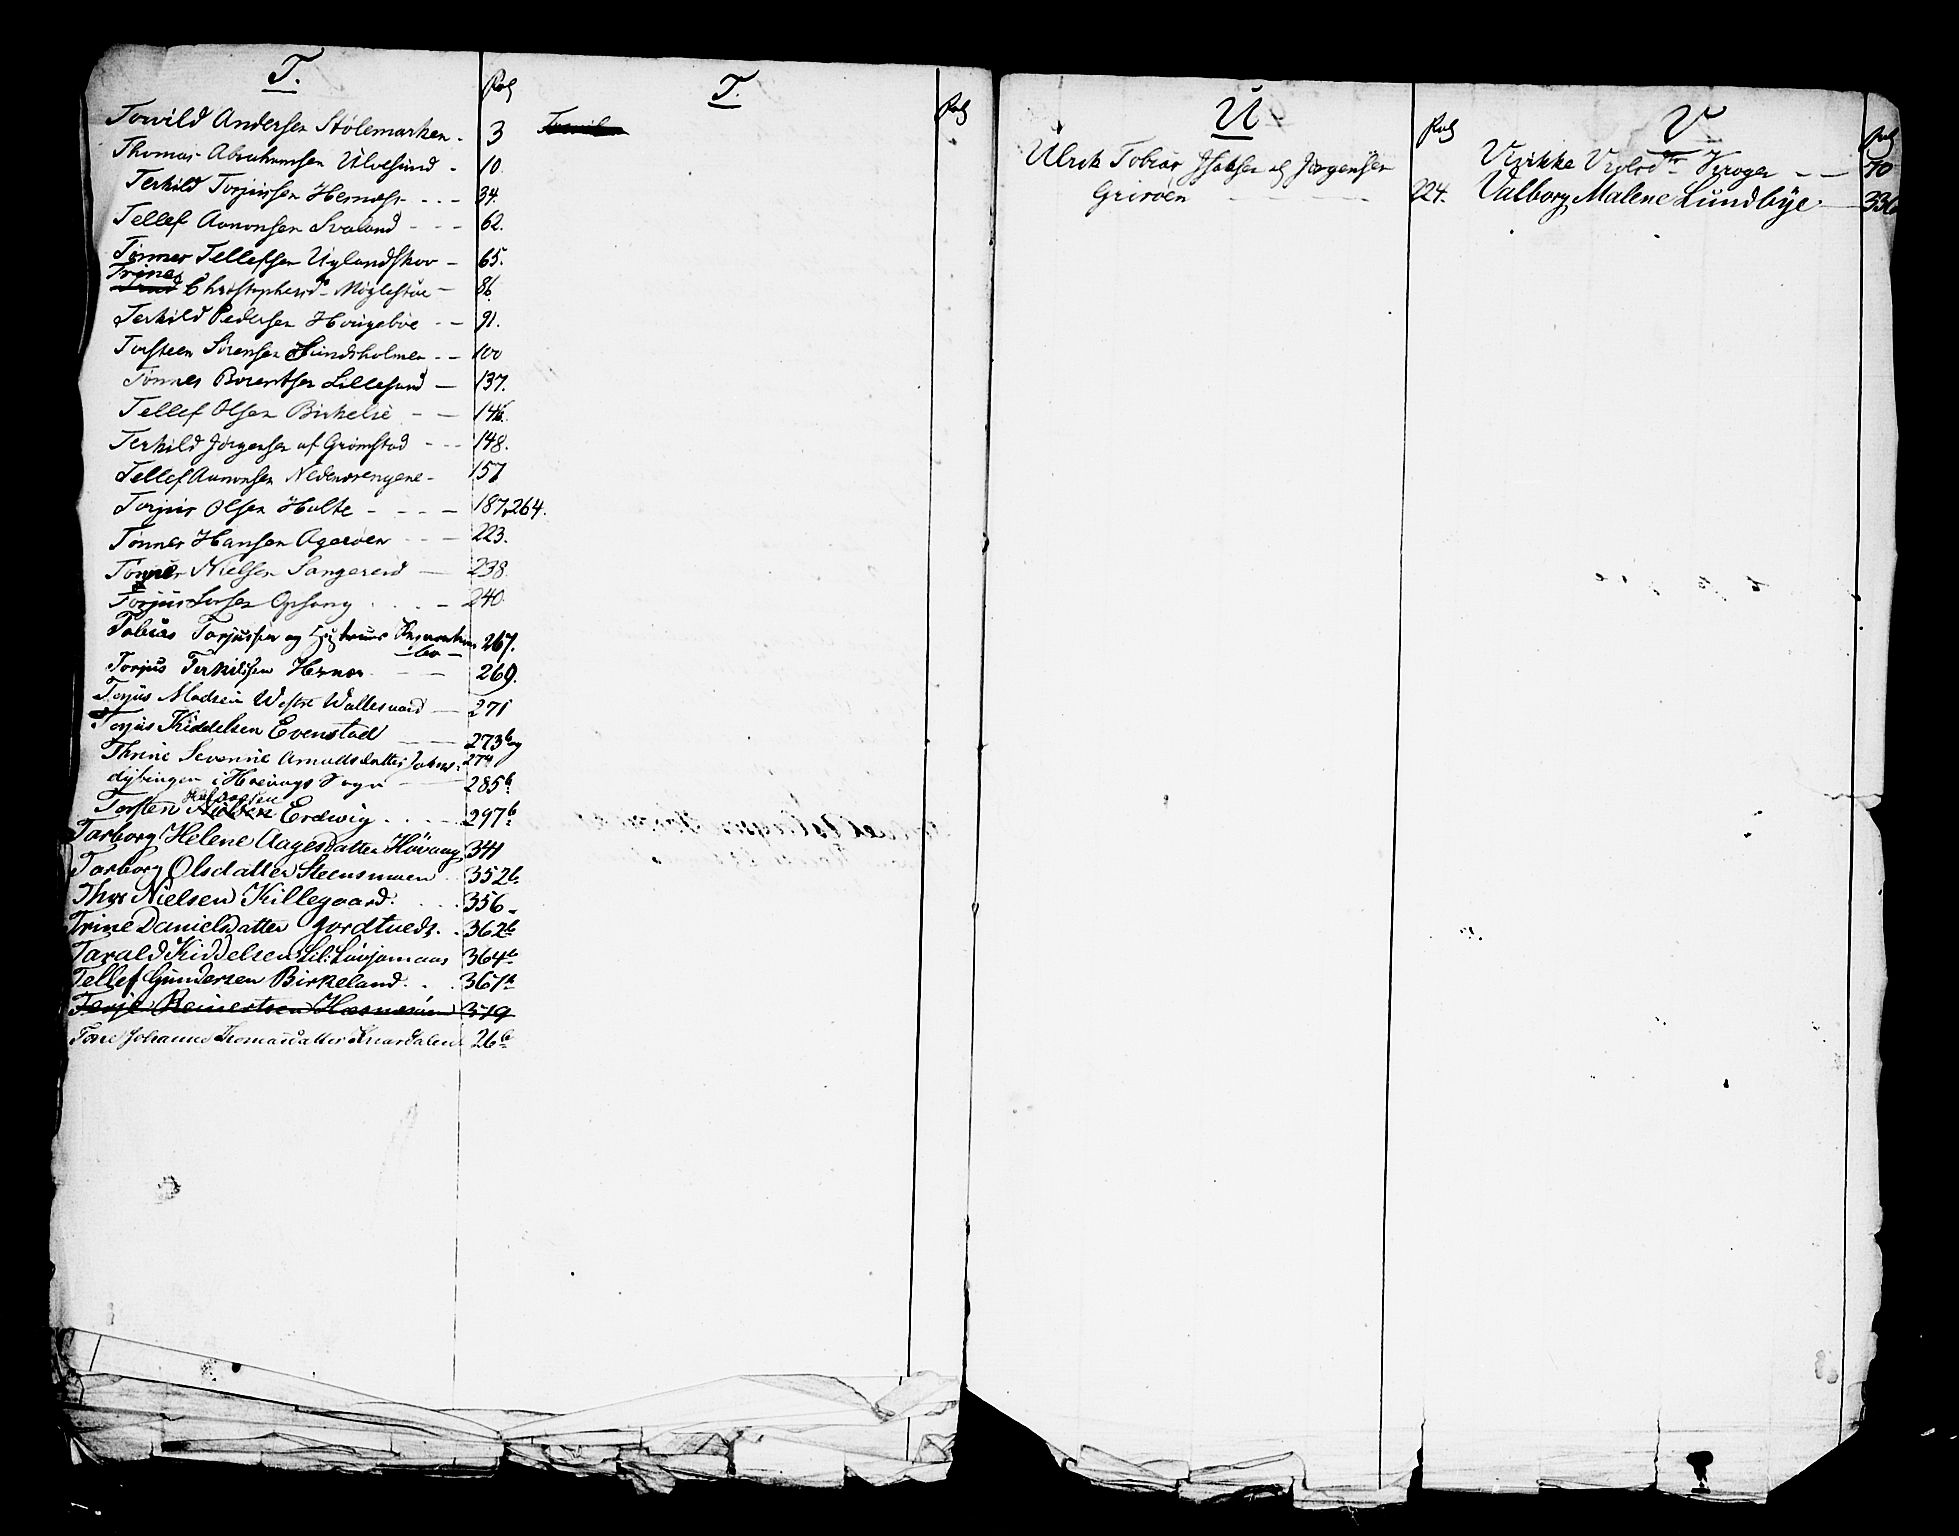 T.
Fol
Torvild Andersen Stølemarken - 3
Thomas Abrahamsen Ulvesund - 10.
Terkild Torjussen Hernæss - - - 34.
Tellef Aanonsen Svaland - - - 62.
Tønnes Tellefsen Uglandskov - 65.
Trine
Christophersd. Møglestue - 86
Terkild Pedersen Hougeboe - - 91.
Torsteen Sørensen Sundsholmen - - 100
Tønnes Berentsen Lillesand - 137.
Tellef Olsen Birkelie - - 146.
Terkild Jørgensen af Grimstad - - - 148.
Tellef Aanonsen Nedenæsengene - 157
Torjus Olsen Hulte - - - - 187, 264.
Tønnes Hansen Agerøen - - - 223.
Nielsen Sangereid - 238.
Torjus Opsang - 240.
Tobias Torjussen og Hustrues
boe 267.
Torjus Terkildsen Hernæs - - 269.
Torjus Madsen Westre Wallesværd - 271
Torjus Kiddelsen Evenstad - - 273b og
Thrine Severine Amundsdatter 274
i Høivaags Sogn - 285b
Torsten Nielsen Erdvig - - - - 297b
Tarborg Helene Aagesdatter Høvaag 341
Tarborg Olsdatter Steensmoen 352b
Thor Nielsen Killegaard. - - - 356
Trine Danielsdatter Jordtveds. - 362b
Tarald Kiddelsen Lil: 364b
Tellef Gundersen Birkeland. - - 367b
Terje Reinertsen 379
Johanne Thomasdatter 26b
T.
Fol
U
Fol
Ulrik Tobias og Jørgensen
Grisøen - - - - - 224.
V
Fol
Vivikke Kroger - - 70
Valborg Malene Lundbye - 336